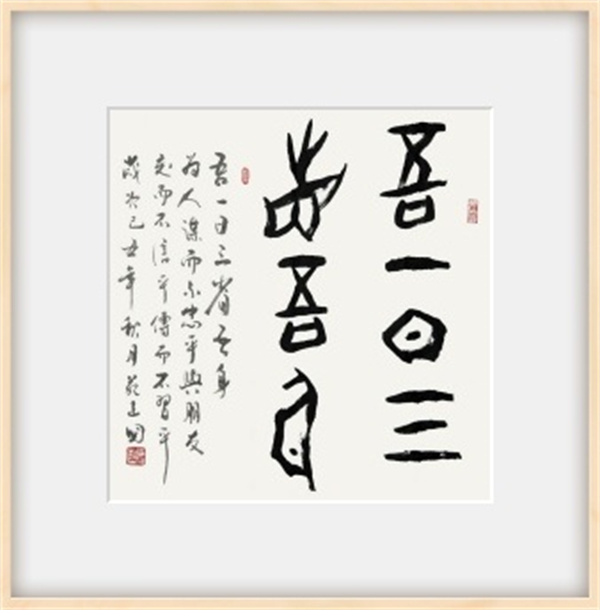 吾一日三
省吾身
吾一日三省吾身
为人谋而不忠乎與朋友
交而不信乎傳而不習乎
歲次己丑年秋月